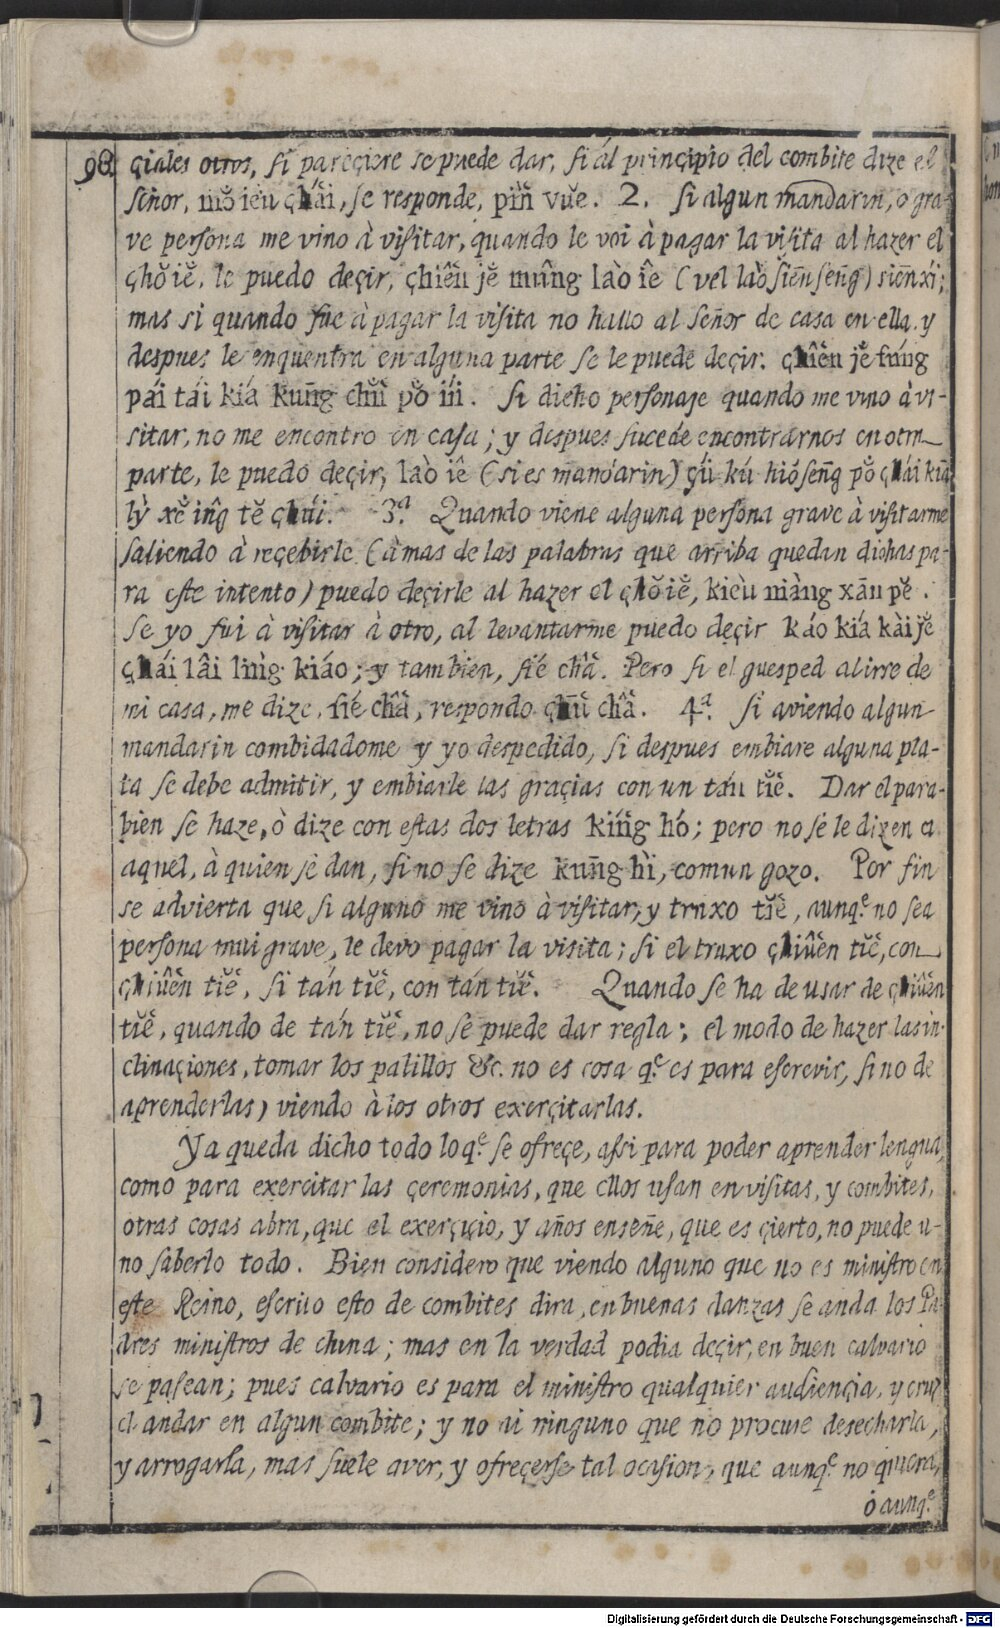 98. çiales otros, si pareçiere se puede dar, si ál prinçipio del combite dize el
señor, mŏ ieù çhái, se responde, pin̄ vŭe. 2. si algun mandarin, o gra-
ve persona me vino à visitar, quando le voi à pagar la visita al hazer el
çhŏ iĕ, le puedo deçir, çhiên jĕ mûng laò îe (vel laò siēn sēng) siēn xí;
mas si quando fue à pagar la visita no hallo al señor de casa en ella, y
despues le enquentra en alguna parte se le puede deçir. çhiên jĕ fúng
pái tái kiá kung̃ chŭ pŏ iú. Si dicho personaje quando me vino à vi-
sitar, no me encontro en casa; y despues sucede encontrarnos en otra
parte, le puedo deçir, laò îe (si es mandarin) çú kú hiŏ seng̃ pŏ çhái kiā
lỳ xĕ inĝ tĕ çhúi. 3.ª Quando viene alguna persona grave à visitarme
saliendo à reçebirle (à mas de las palabras que arriba quedan dichas pa-
ra este intento) puedo deçirle al hazer el çhŏ iĕ, kieù màng xān pĕ.
Se yo fui à visitar à otro, al levantarme puedo deçir káo kiá kài jĕ
çhái lâi lìng kiáo; y tambien, sié châ. Pero si el guesped al irse de
mi casa, me dize, sié châ, respondo çhū châ. 4.ª si aviendo algun
mandarin combidadome y yo despedido, si despues embiare alguna pla-
ta se debe admitir, y embiarle las graçias con un tán tiĕ. Dar el para-
bien se haze, ò dize con estas dos letras kíng hó; pero no se le dizen a
aquel, à quien se dan, sino se dize kung̃ hì, comun gozo. Por fin
se advierta que si alguno me vino à visitar, y truxo tiĕ, aunq.e no sea
persona mui grave, le devo pagar la visita; si el truxo çhiûên tiĕ, con
çhiûên tiĕ, si tán tiĕ, con tán tiĕ. Quando se ha de usar de çhiûên
tiĕ, quando de tán tiĕ, no se puede dar regla; el modo de hazer las in-
clinaçiones, tomar los palillos &c. no es cosa q.e es para escrevir, sino de
aprenderlas) viendo à los otros exerçitarlas.
Ya queda dicho todo lo q.e se ofreçe, assi para poder aprender lengua,
como para exercitar las çeremonias, que ellos usan en visitas, y combites,
otras cosas abra, que el exerçiçio, y años enseñe, que es çierto, no puede u-
no saberlo todo. Bien considero que viendo alguno que no es ministro en
este Reino, escrivo esto de combites dira, en buenas danzas se anda los Pa-
dres ministros de china; mas en la verdad podia deçir, en buen calvario
se pasean; pues calvario es para el ministro qualquier audiençia, y cruz
el andar en algun combite; y no ai ninguno que no procure desecharla,
y arrogarla, mas suele aver, y ofreçerse tal ocasion, que aunq.e no quiera,
ò aunq.e
Digitalisierung gefördert durch die Deutsche Forschungsgemeinschaft - DFG